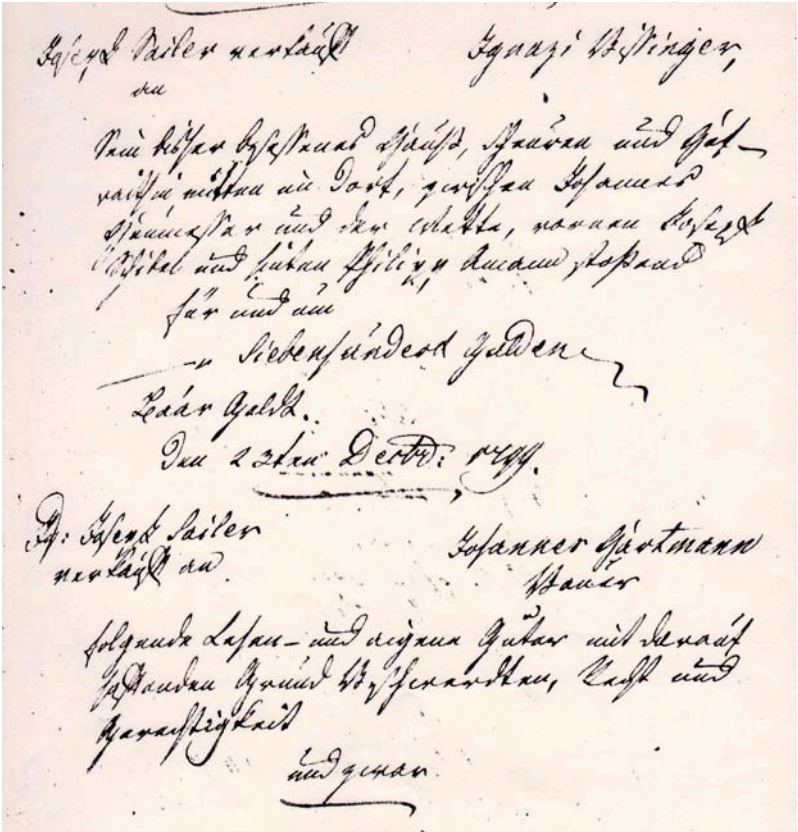 Joseph Sailer verkauft
Ignazi Bissinger,
an
Sein bisher besessenes Hauß, Scheuren und Hof-
raithin mitten im Dorf, zwischen Johannes
und der Wette, vornen Joseph
Schibel und hinten Philipp Amann stoßend
für und um
Siebenhundert Gulden
Baar Geldt.
Den 23ten Decbr: 1799.
Joseph Sailer
verkauft an
Johannes Hartmann
Bauer
folgende Lehen- und eigene Güter mit darauf
haftenden Grund Beschwerdten, Recht und
Gerechtigkeit
und zwar